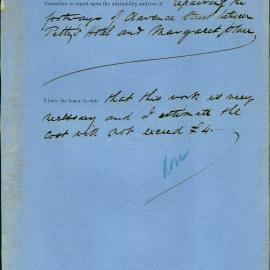 Committee to report upon the advisability and cost of repairing the
footways of Clarence Street between
Petty's Hotel and Margaret place
I have the honor to state that this work is very
necessary and I estimate the
cost will not exceed £4.